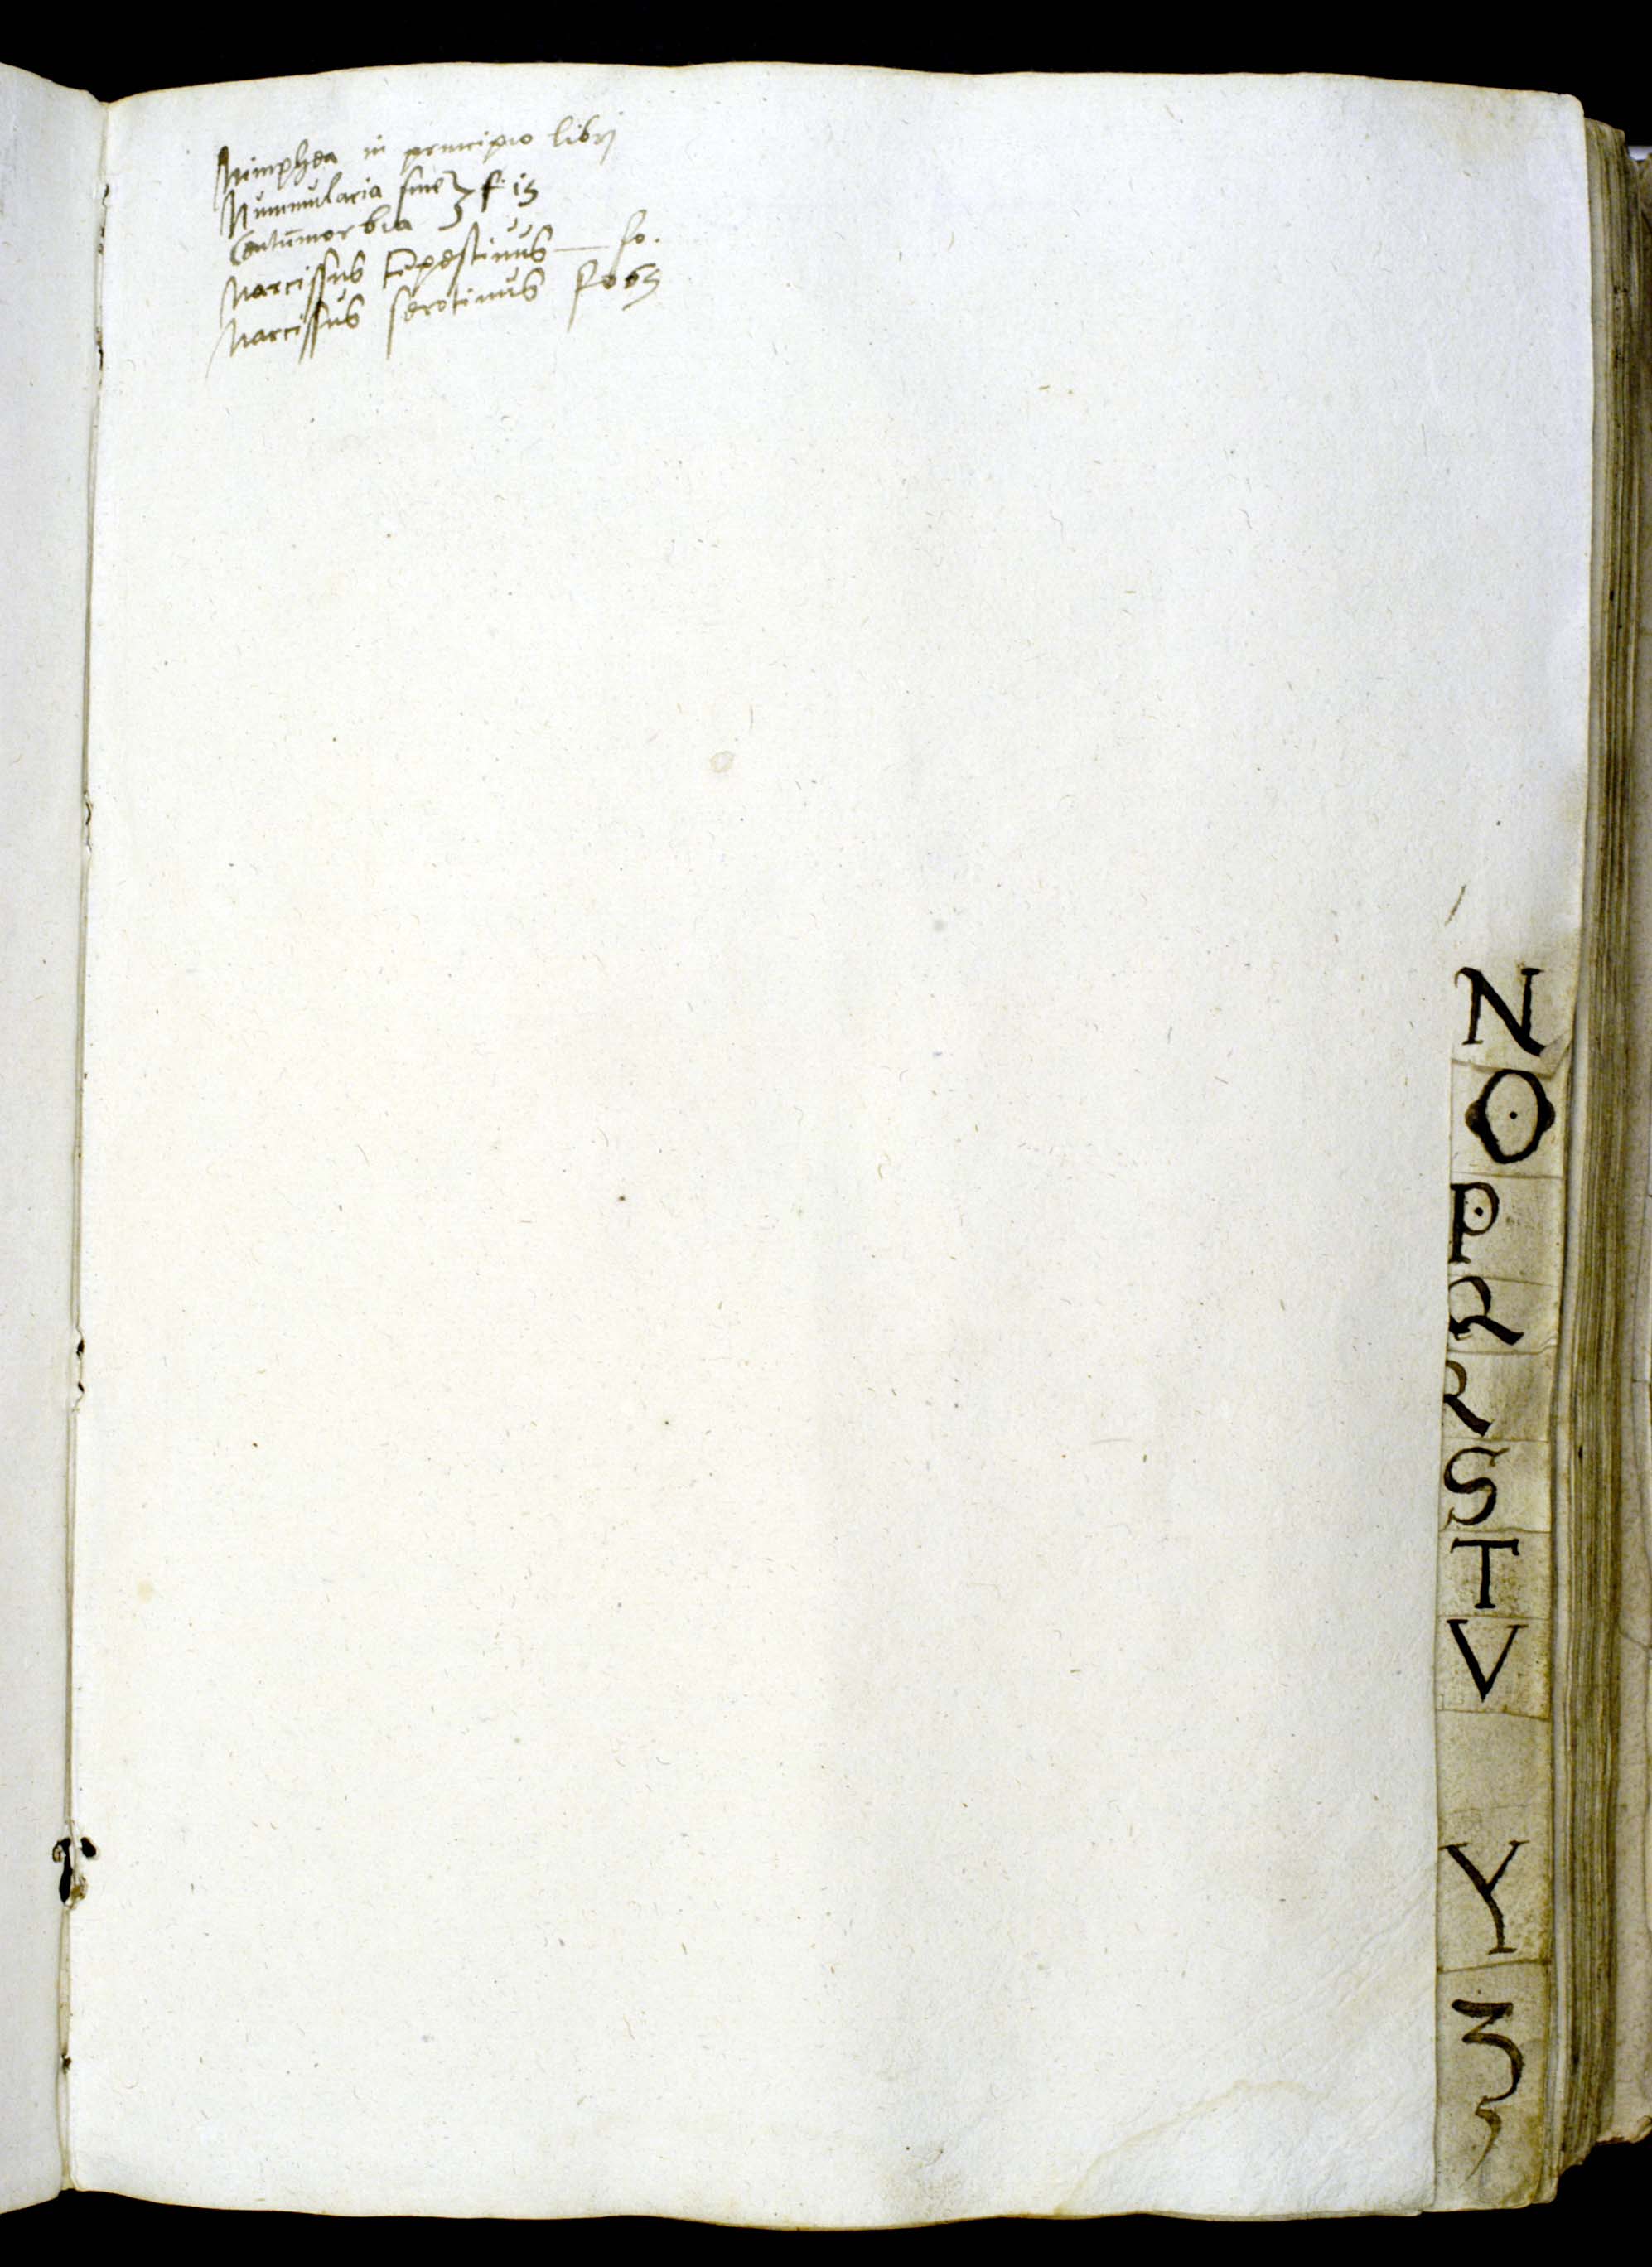 Nimphea in principio libri
Nummularia siue } f. 15
Centūmorbia
Narcissus tēpestiuus — fo.
Narcissus serotinus fo 65
N
O
P
Q
R
S
T
V
Y
Z